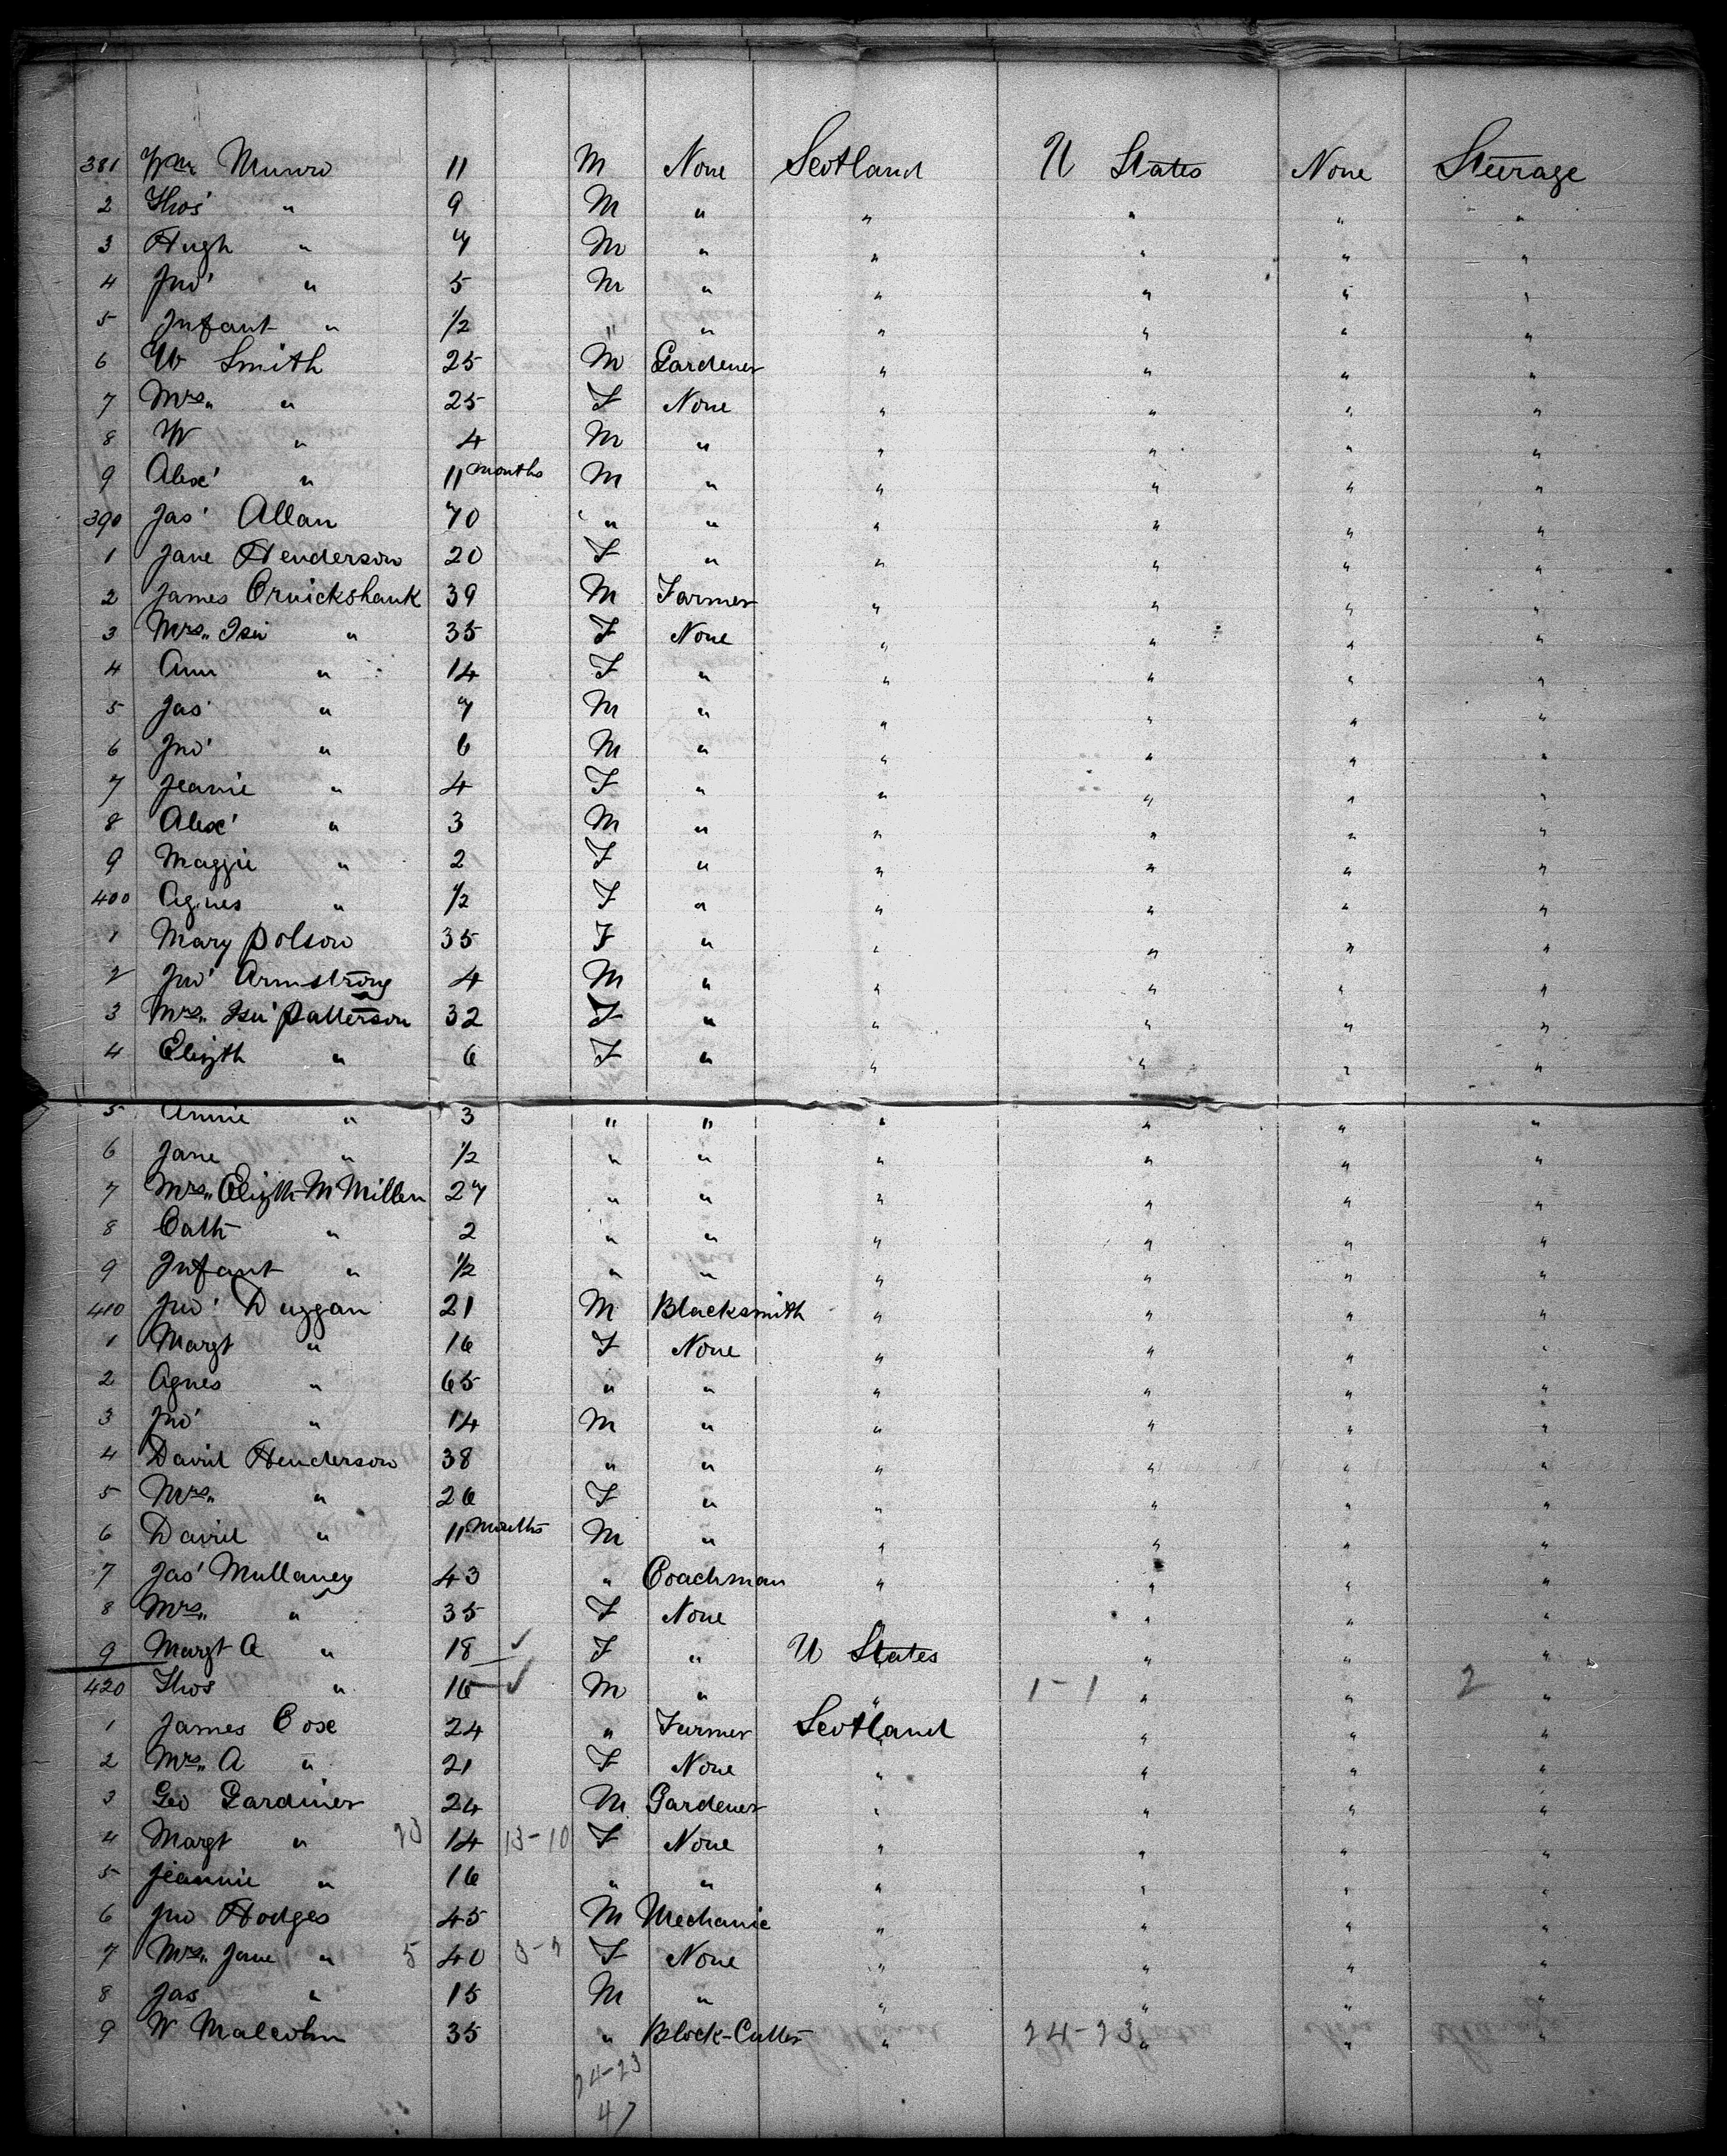 381 Wm Munro 11 M None Scotland U States None Steerage
2 Thos' " 9 M " " " " "
3 Hugh " 7 M " " " " "
4 Jno' " 5 M " " " " "
5 Infant " 1/2 " " " " " "
6 W Smith 25 M Gardener " " " "
7 Mrs " 25 F None " " " "
8 W " 4 M " " " " "
9 Alex' " 11 months M " " " " "
390 Jas' Allan 70 " " " " " "
1 Jane Henderson 20 F " " " " "
2 James Cruickshank 39 M Farmer " " " "
3 Mrs Isa' " 35 F None " " " "
4 Ann " 14 F " " " " "
5 Jas' " 7 M " " " " "
6 Jno' " 6 M " " " " "
7 Jeanie " 4 F " " " " "
8 Alex' " 3 M " " " " "
9 Maggie " 2 F " " " " "
400 Agnes " 1/2 F " " " " "
1 Mary Polson 35 F " " " " "
2 Jno' Armstrong 4 M " " " " "
3 Mrs Isa' Patterson 32 F " " " " "
4 Elizth " 6 F " " " " "
5 Annie " 3 " " " " " "
6 Jane " 1/2 " " " " " "
7 Mrs Elizth McMillen 27 " " " " " "
8 Cath " 2 " " " " " "
9 Infant " 1/2 " " " " " "
410 Jno' Duggan 21 M Blacksmith " " " "
1 Margt " 16 F None " " " "
2 Agnes " 65 " " " " " "
3 Jno' " 14 M " " " " "
4 David Henderson 38 " " " " " "
5 Mrs " 26 F " " " " "
6 David " 11 Months M " " " " "
7 Jas' Mullaney 43 " Coachman " " " "
8 Mrs " 35 F None " " " "
9 Margt A " 18 ✓ F " U States " " "
420 Thos " 16 ✓ M " " 1-1 " " 2 "
1 James Cose 24 " Farmer Scotland " " "
2 Mrs A " 21 F None " " " "
3 Geo Gardiner 24 M Gardener " " " "
4 Margt " 23 14 13-10 F None " " " "
5 Jeannie " 16 " " " " " "
6 Jno Hodges 45 M Mechanic " " " "
7 Mrs Jane " 5 40 F None " " " "
8 Jas " 15 M " " " " "
9 W Malcolm 35 " Block-Cutter " 24-23 " " "
24-23
47